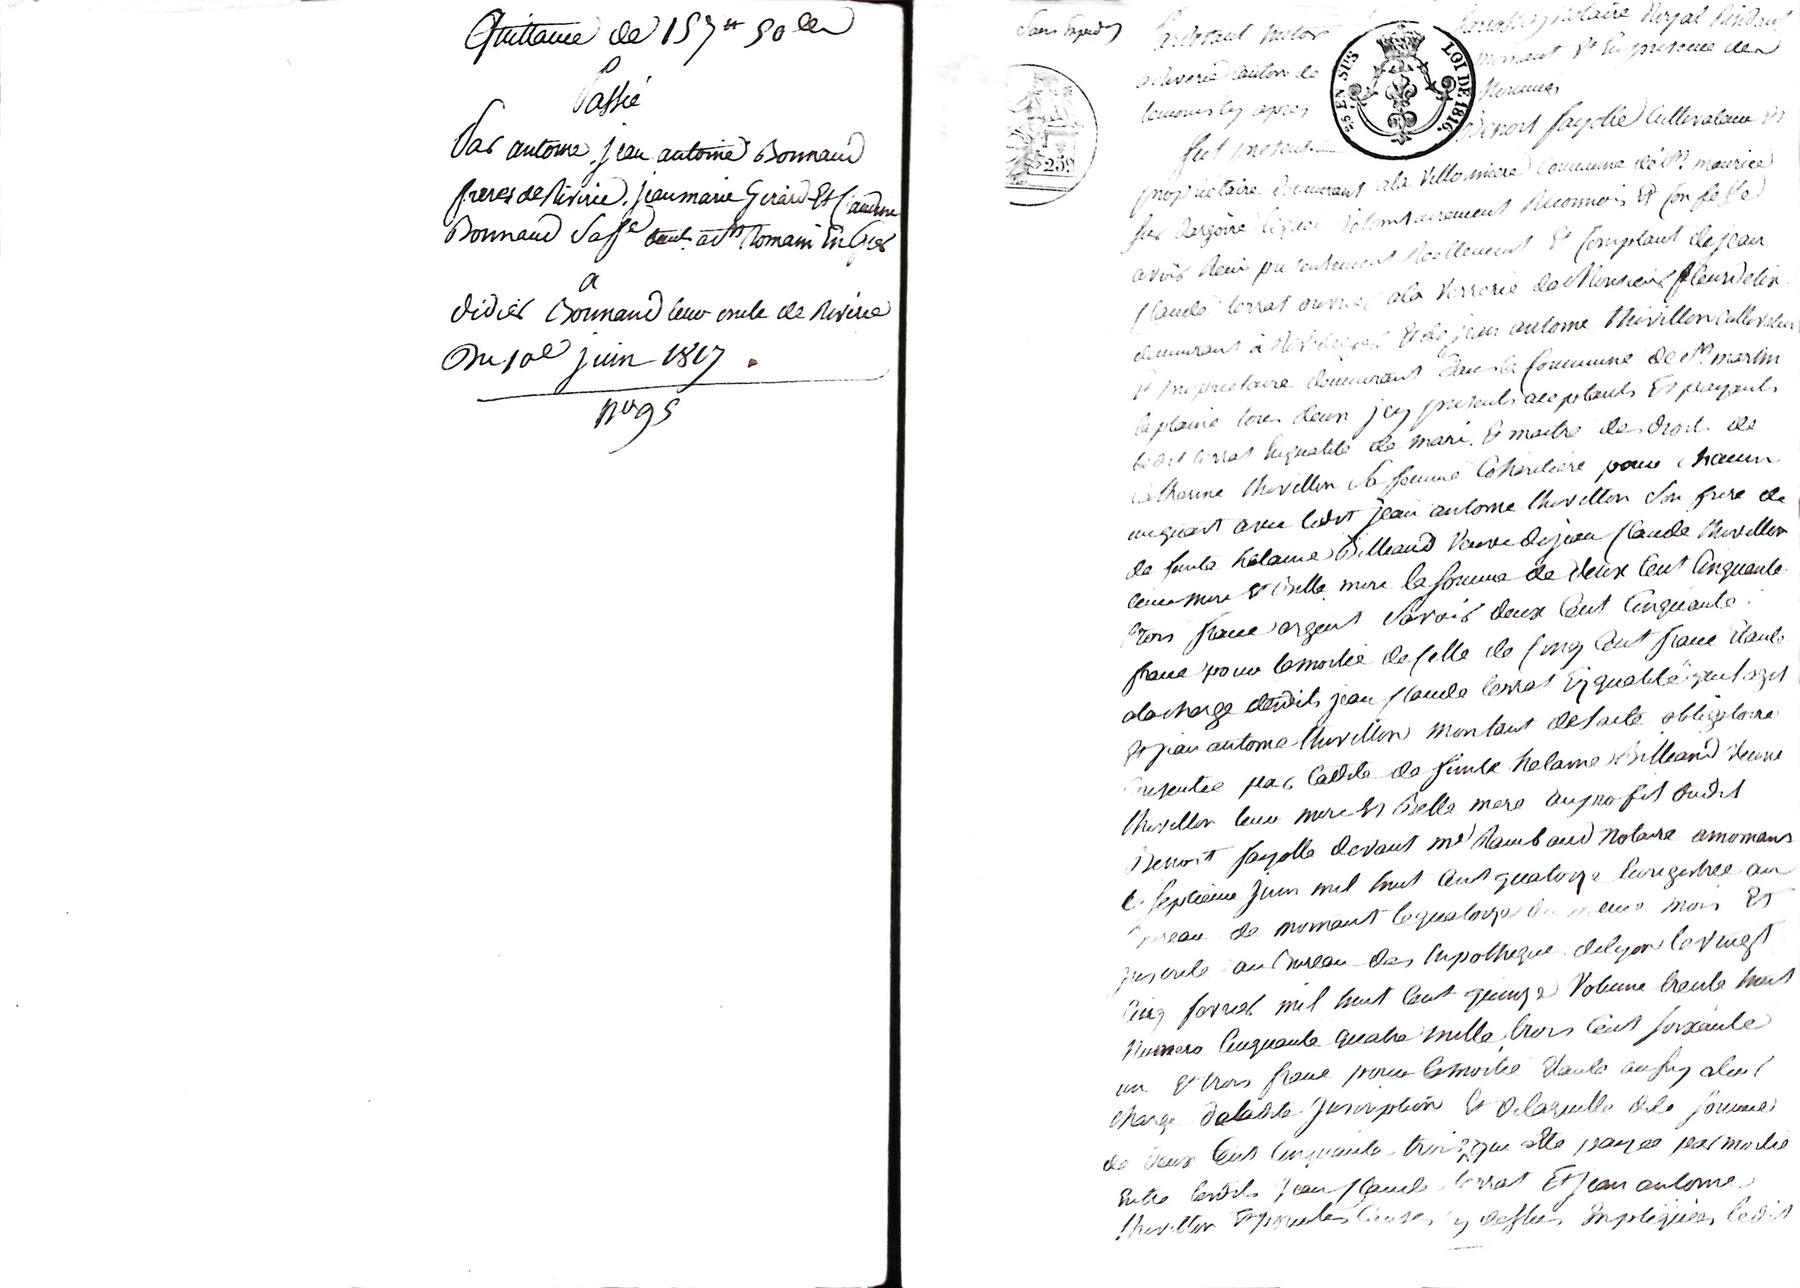 Quittance de 157 tt 50 c
Passée
Par antoine, jean antoine Bonnand
freres de Riverie, jeanmarie Girard Et Claudine
Bonnand Sa fe dem.t a St Romain En Gier
a
didier Bonnand leur oncle de Riverie
Du 10e juin 1817
No 95
Pardevant notaire Royal Résidant
a Riverie canton de mornant Et En presence des
temoins cy apres Nommés
25 EN SUS LOI DE 1816.
259
fut present Benoit fayolle Cultivateur Et
proprietaire demeurant a la Villonniere Commune de St maurice
sur dargoire lequel Volontairement Reconnoit Et Confesse
avoir Reçu presentement Reellement Et Comptant de jean
Claude terrat ouvrier a la Verrerie de Monsieur fleurdelix
demeurant a Rivedegier Et de jean antoine thivillon cultivateur
Et proprietaire demeurant dans la Commune de St martin
la plaine tous deux jcy presents acceptants Et payants
ledit terrat En qualité de mari Et maitre des droits de
Catherine thivillon Sa femme Coheritiere pour chacun
un quart avec ledit jean antoine thivillon Son frere de
de funte helaine Billeaud Veuve de jean Claude thivillon
leur mere Et Belle mere la Somme de deux Cent Cinquante
trois franc argent Savoir deux Cent Cinquante
franc pour la moitié de Celle de Cinq Cent franc Etant
a la charge desdits jean Claude terrat En qualité quil agit
Et jean antoine thivillon montant de lacte obligatoire
Consentie par ladite de funte helaine Billeaud Veuve
thivillon leur mere Et Belle mere au profit dudit
Benoit fayolle devant me Rambaud Notaire a mornant
le Septieme juin mil huit Cent quatorze Enregistree au
Bureau de mornant le quatorze du meme mois Et
jnscrite au Bureau des hypotheque de lyon le Vingt
Cinq fevrier mil huit Cent quinze Volume trente huit
Numero Cinquante quatre mille trois Cent Soixante
un Et trois franc pour la moitié Etant aussy a leur
charge de ladite jnscription Et de laquelle dite Somme
de deux Cent Cinquante trois payee par moitié
Entre lesdits jean Claude terrat Et jean antoine
thivillon Et pour les Causes cy dessus Expliquées ledit